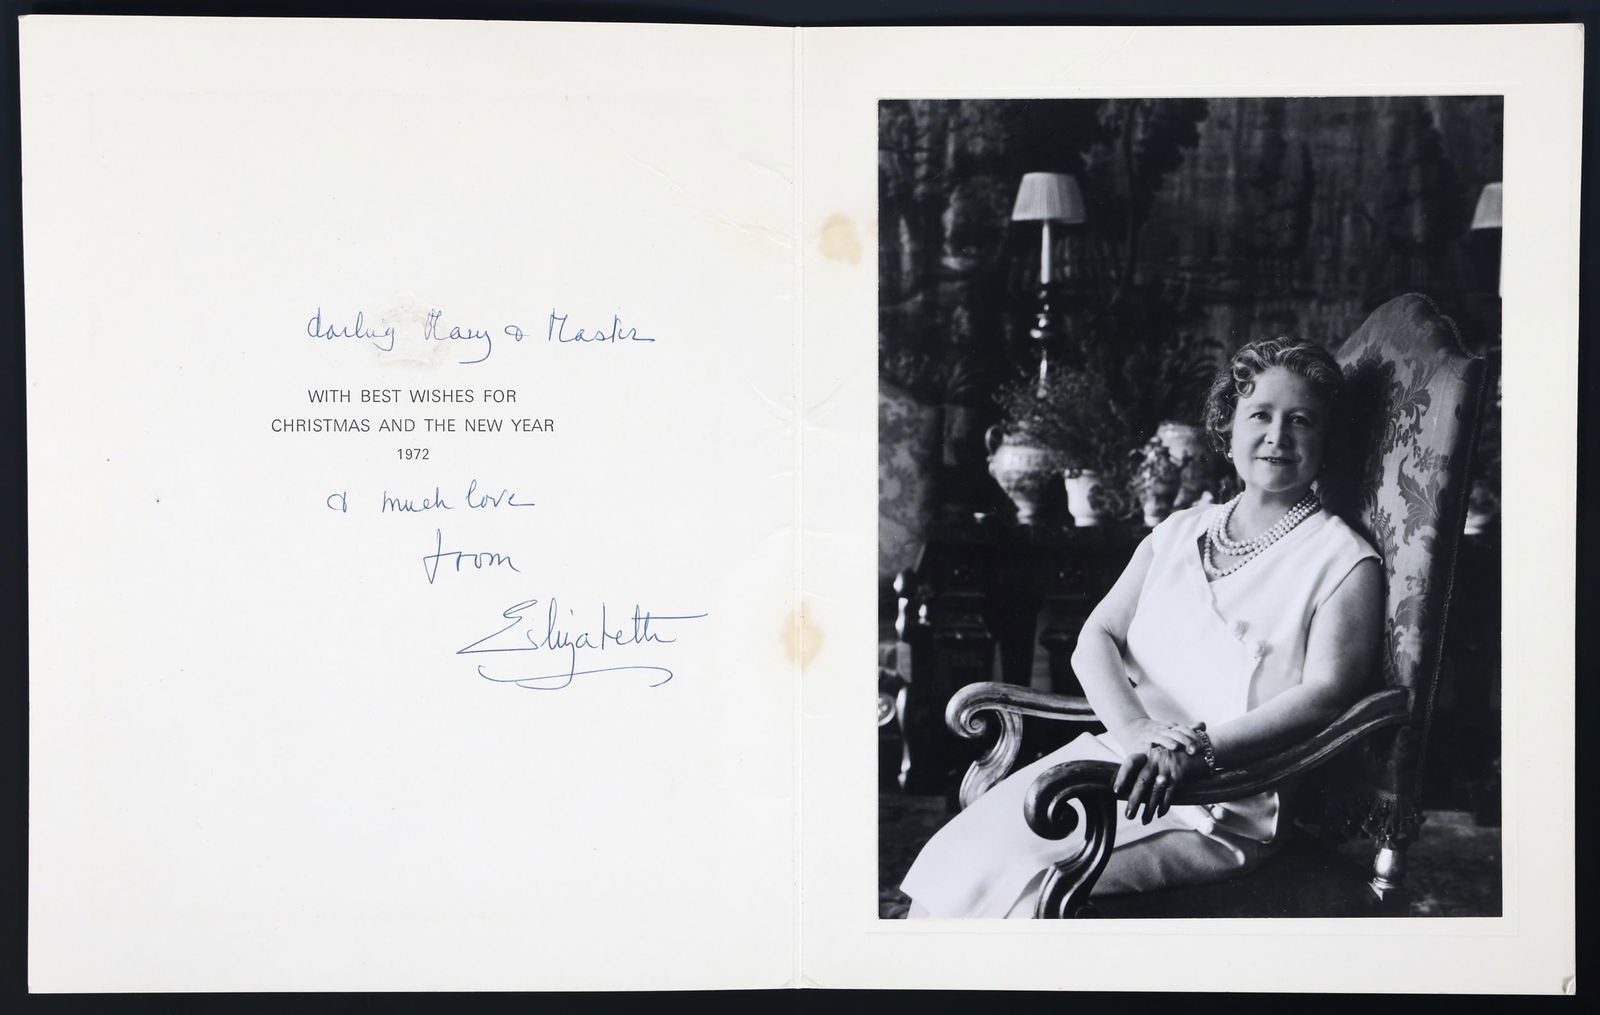 darling Mary & Master
WITH BEST WISHES FOR
CHRISTMAS AND THE NEW YEAR
1972
& much love
from
Elizabeth